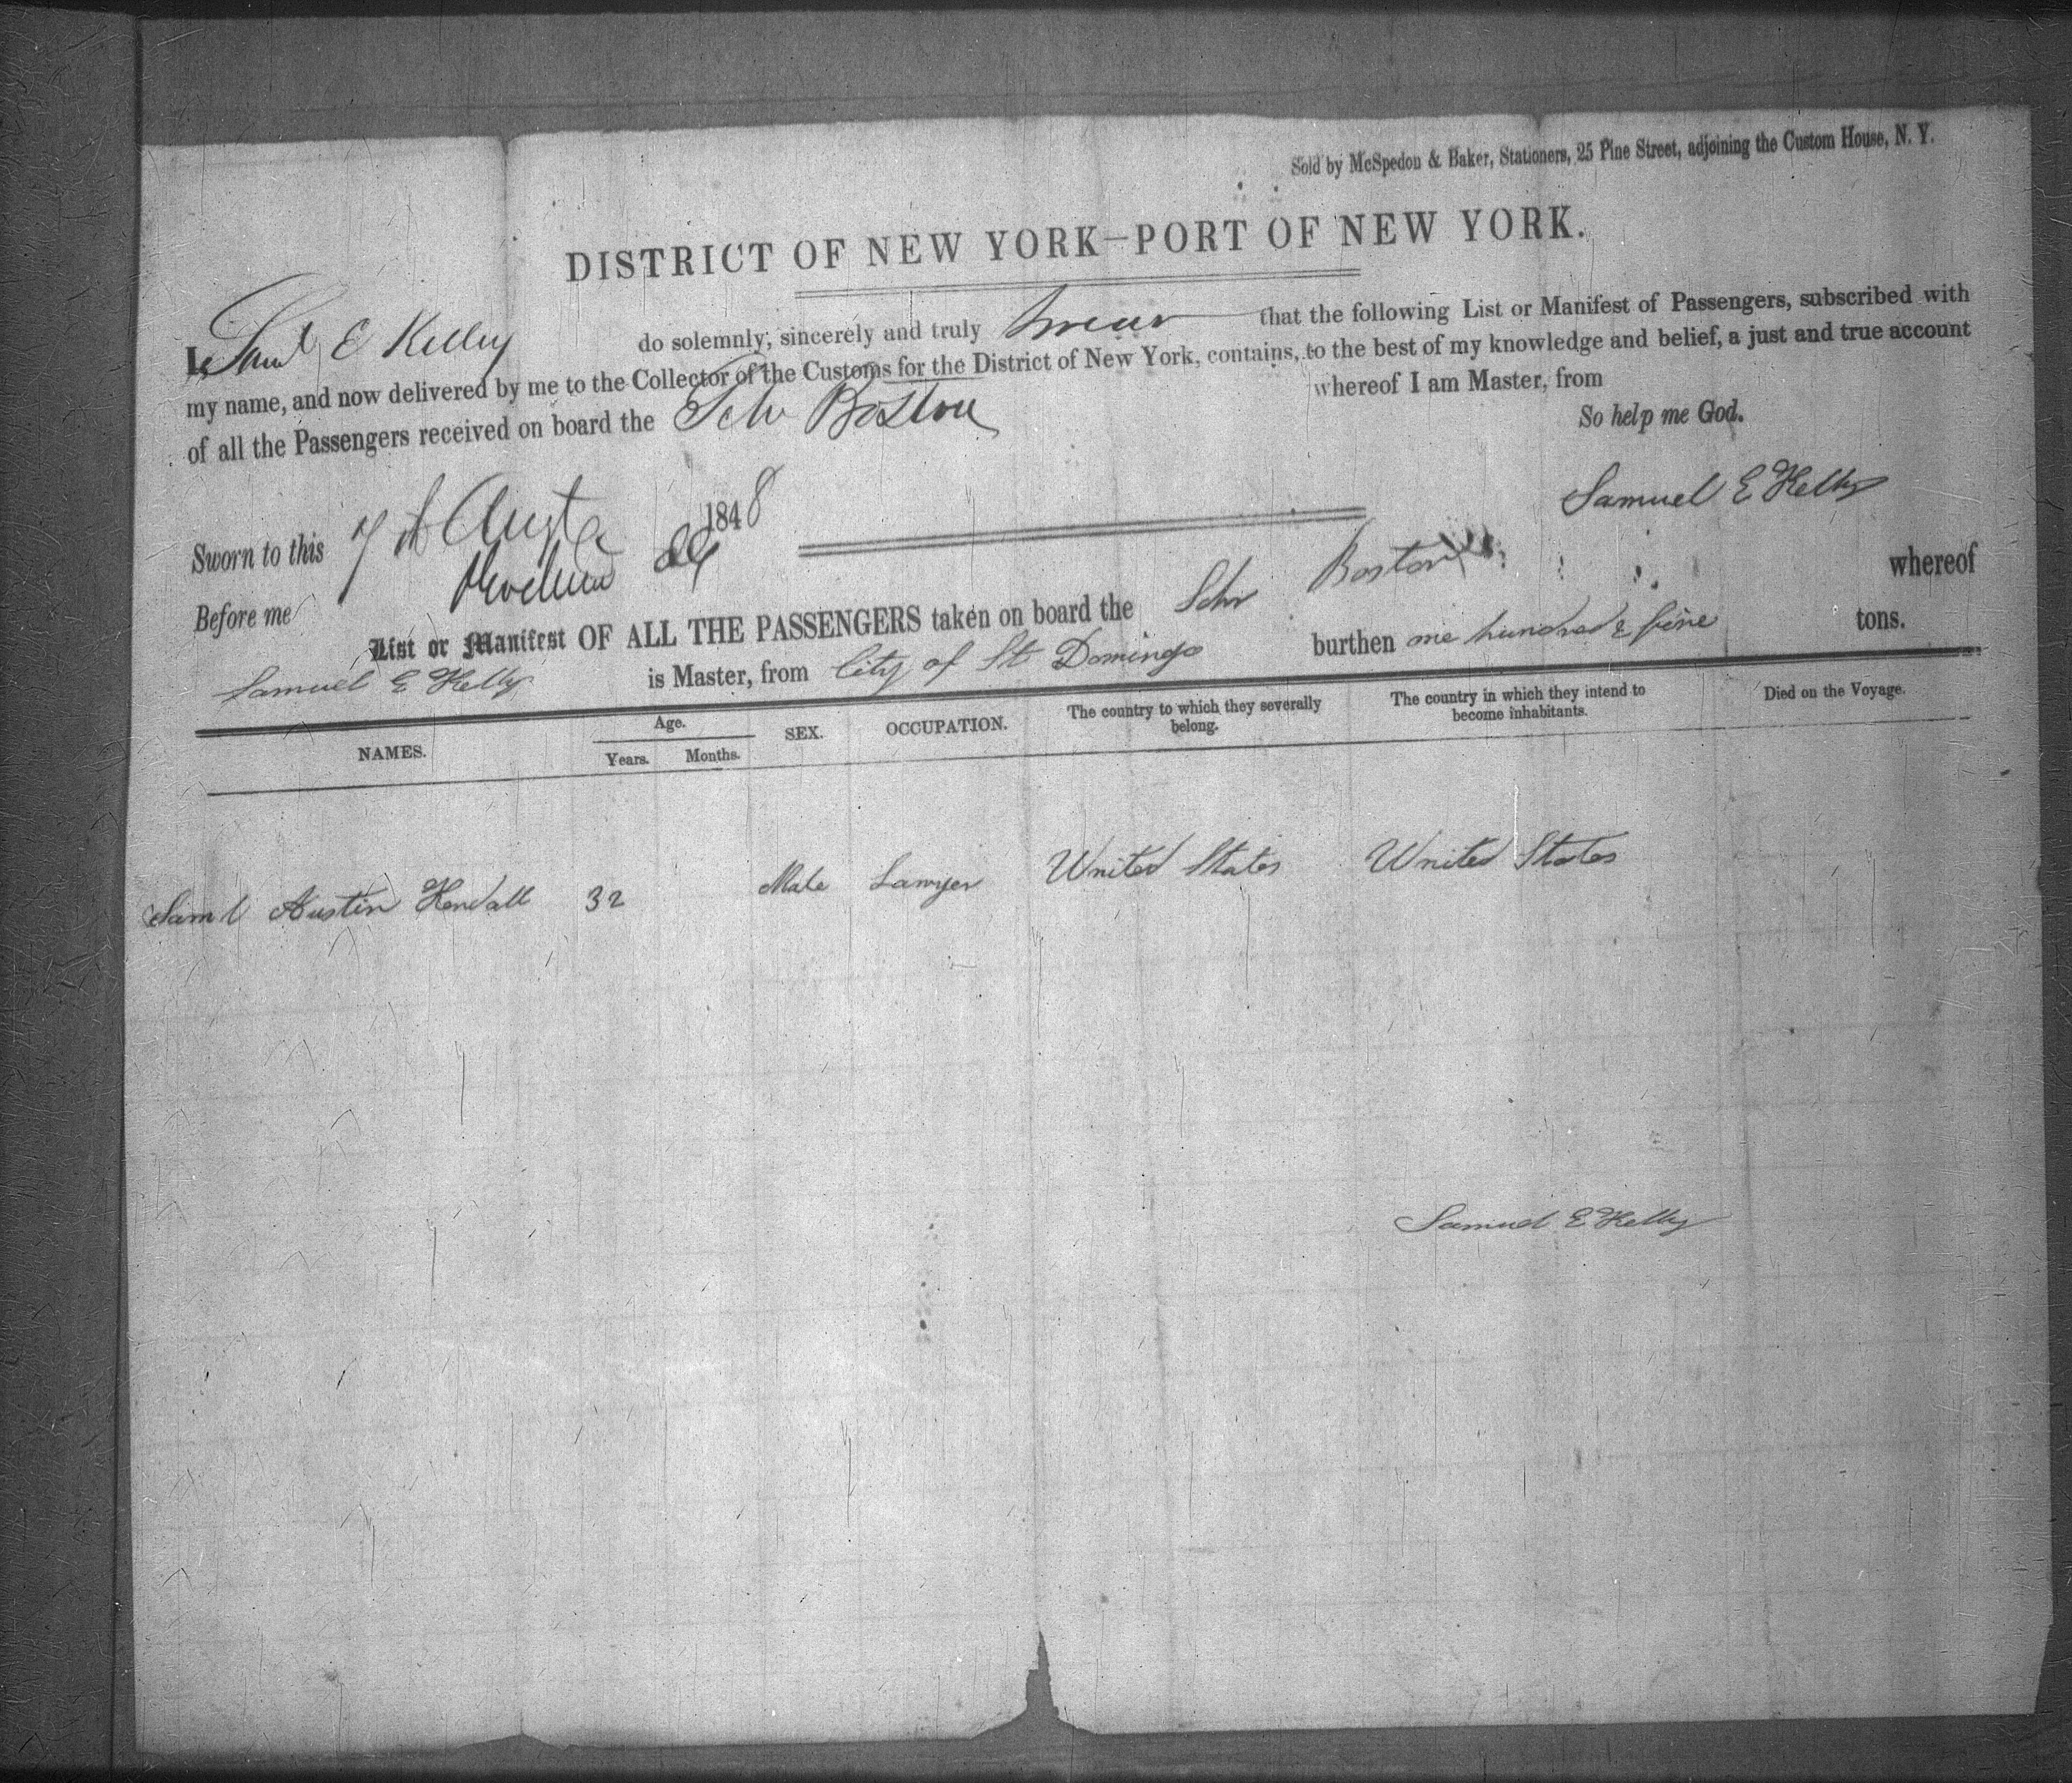 Sold by McSpedon & Baker, Stationers, 25 Pine Street, adjoining the Custom House, N. Y.
DISTRICT OF NEW YORK—PORT OF NEW YORK.
I, Saml E Kelley do solemnly, sincerely and truly swear that the following List or Manifest of Passengers, subscribed with
my name, and now delivered by me to the Collector of the Customs for the District of New York, contains, to the best of my knowledge and belief, a just and true account
of all the Passengers received on board the Schr Boston whereof I am Master, from
So help me God.
Samuel E Kelly
Sworn to this 7 1848
Before me
List or Manifest OF ALL THE PASSENGERS taken on board the Schr Boston whereof
Samuel E Kelly is Master, from City of St Domingo burthen one hundred & five tons.
NAMES. Age. Years. Months. SEX. OCCUPATION. The country to which they severally belong. The country in which they intend to become inhabitants. Died on the Voyage.
Saml Austin Kendall 32 Male Lawyer United States United States
Samuel E Kelly